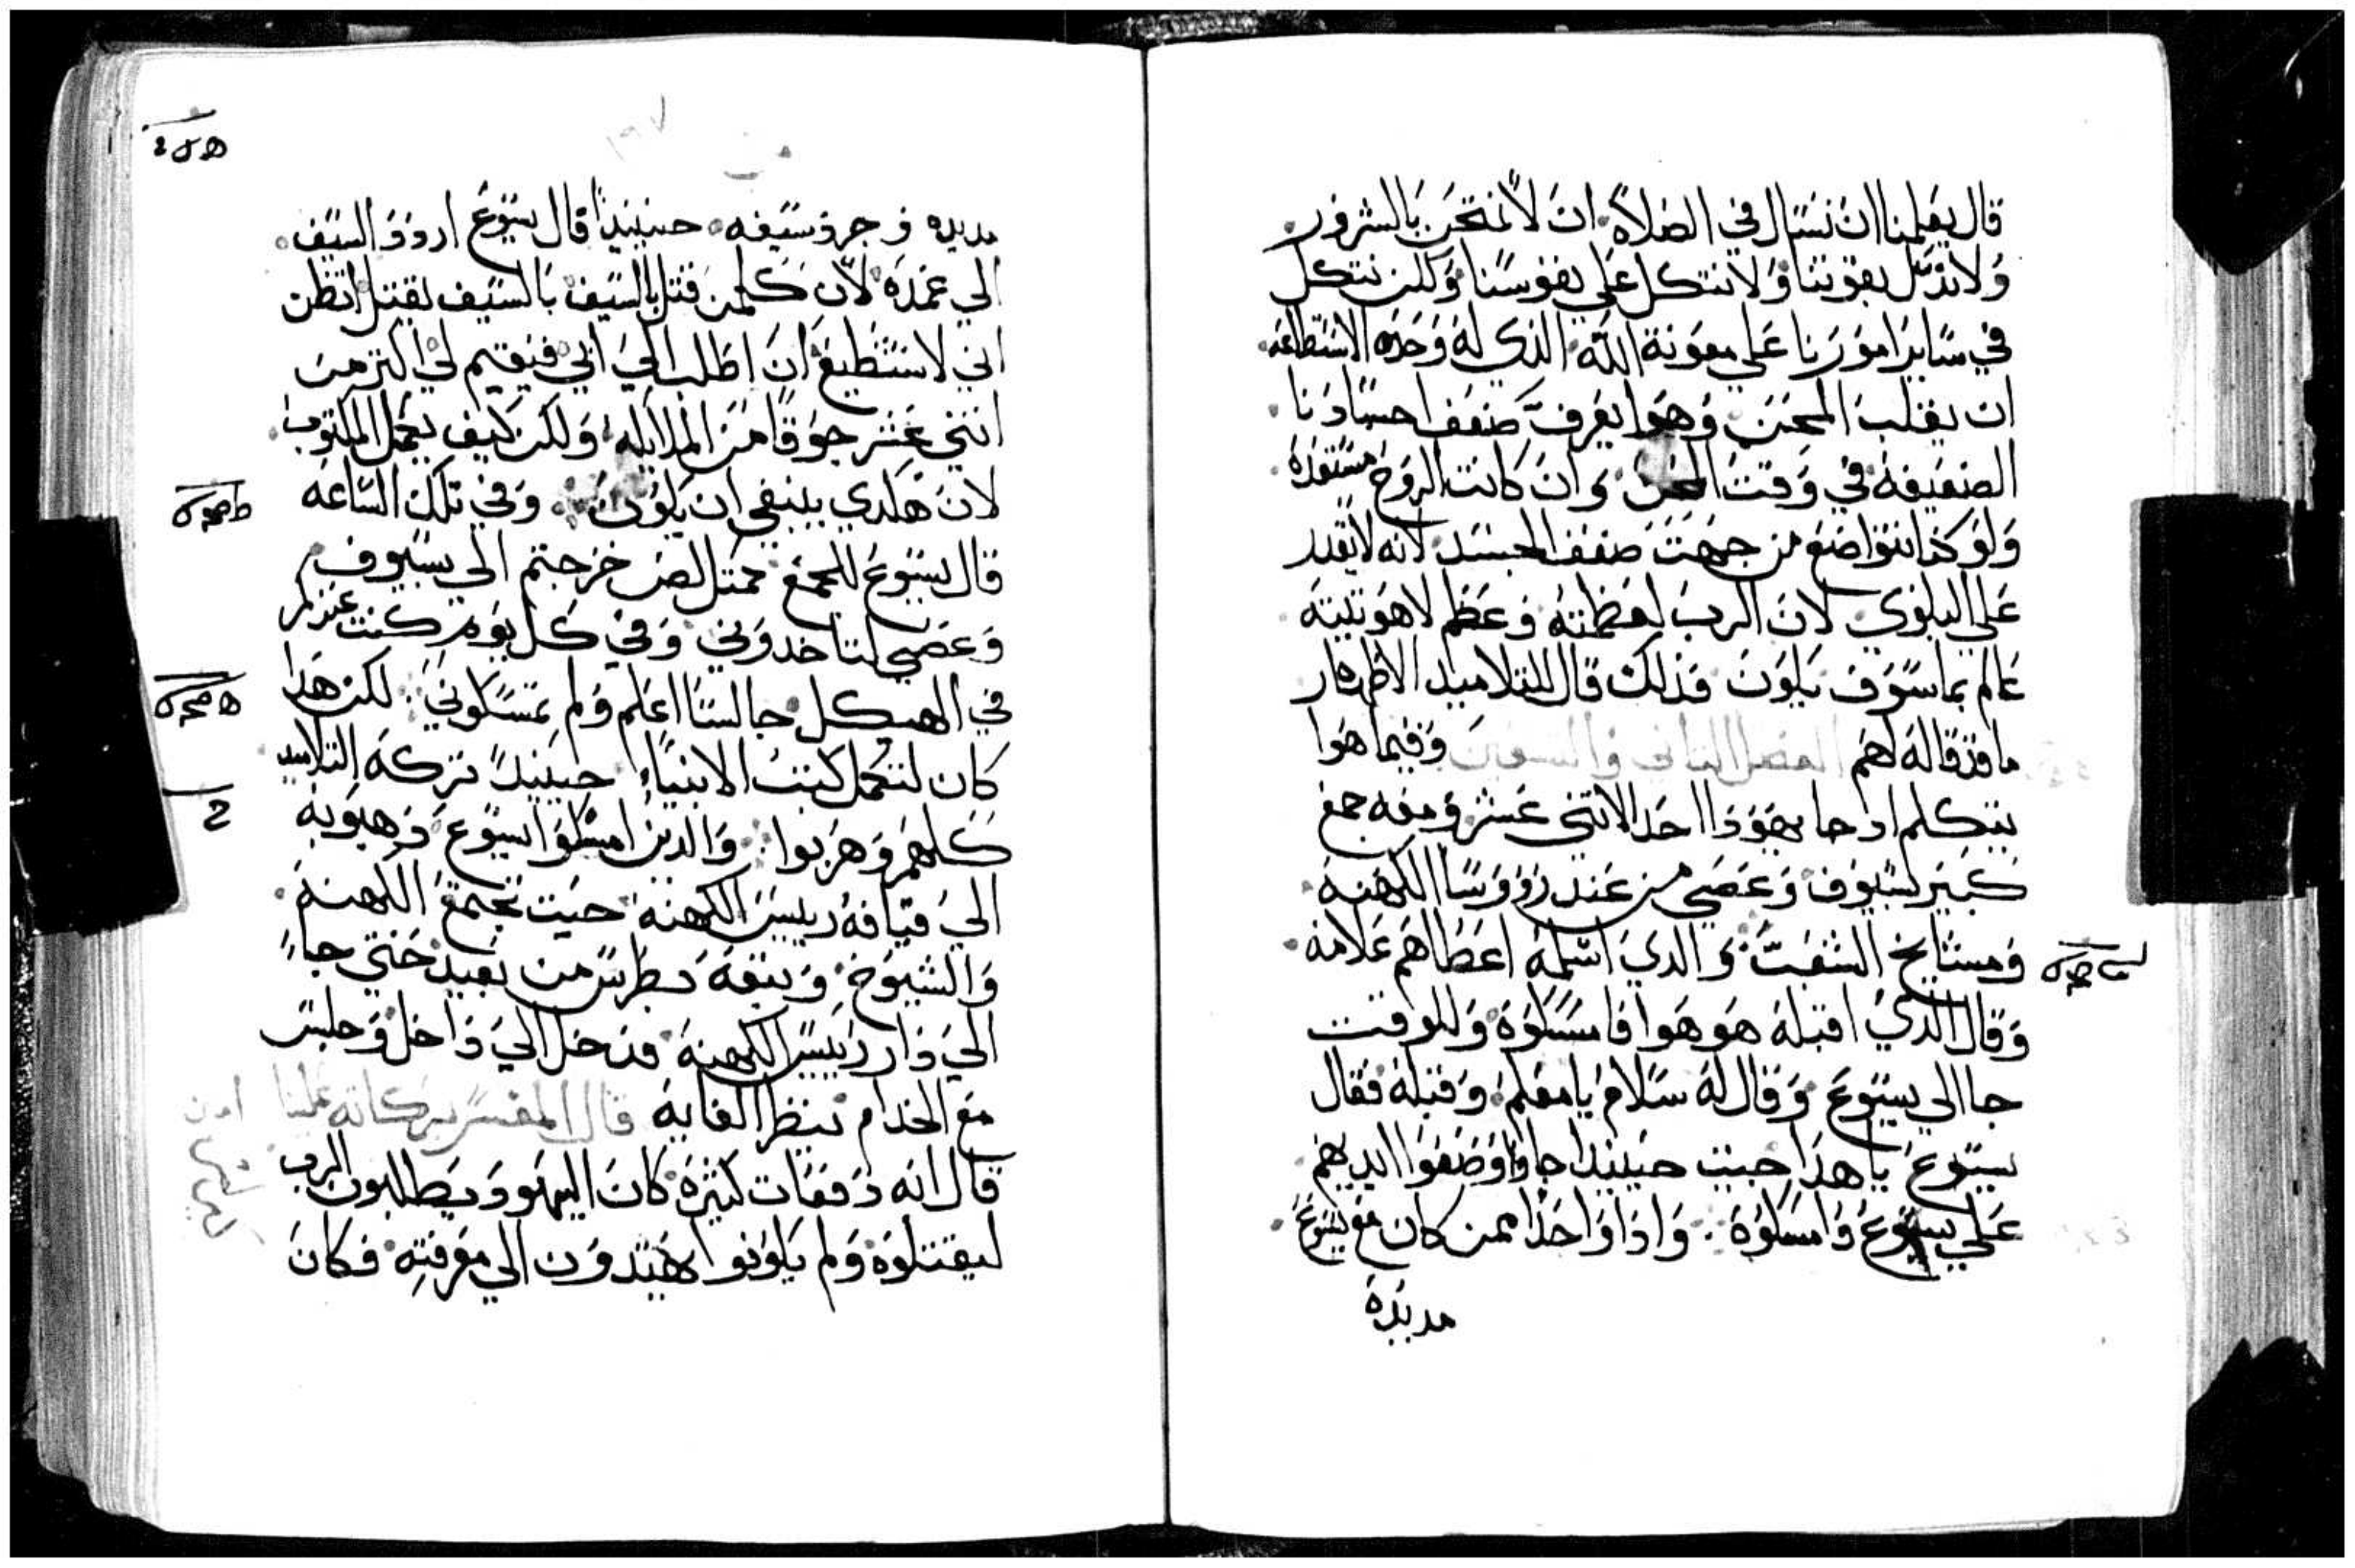 قال يعلمنا ان نسال في الصلاة ان لا نمتحن بالشرور
ولا ندل بقوتنا ولا نتكل علي نفوسنا ولكن نتكل
في ساير امورنا علي معونة الله الذي له وحده الاستطاعه
ان يغلب المحن وهوا يعرف ضعف احسادنا
الضعيفه في وقت المحن وان كانت الروح مستعده
ولو كذا نتواضع من جهت ضعف الجسد لانه لا يقدر
علي البلوي لان الرب لعظمته وعظم لاهوتيته
عالم بما سوف يكون فذلك قال للتلاميد الاطهار
ما قد قاله لهم الفصل التاني والسبعين وفيما هوا
يتكلم اد جا يهودا احد الاتني عشر ومعه جمع
كبير بسيوف وعصي من عند رووسا الكهنه
ومشايخ الشعب والدي اسلمه اعطاهم علامه
وقال الدي اقبله هو هوا فامسكوه وللوقت
جا الي يسوع وقال له سلام يا معلم وقبله فقال
يسوع يا هدا جيت حينيدا جاوا وضعوا ايديهم
علي يسوع وامسكوه واذا واحدا ممن كان مع يسوع
مد يده
مد يده وجرد سيفه حينيدا قال يسوع اردد السيف
الي غمده لان كلمن قتل بالسيف بالسيف يقتل اتظن
اني لا استطيع ان اطلب الي ابي فيقيم لي اكتر من
اتني عشر جوقا من الملايكه ولكن كيف يكمل المكتوب
لان هكدي ينبغي ان يكون وفي تلك الساعه
قال يسوع للجمع كمتل لص خرجتم الي بسيوف
وعصي لتاخدوني وفي كل يوم كنت عندكم
في الهيكل جالسا اعلم ولم تمسكوني لكن هدا
كان لتكمل كتب الانبياء حينيدا تركه التلاميد
كلهم وهربوا والدين امسكوا يسوع دهبوبه
الي قيافه رييس الكهنه حيت تجتمع الكهنه
والشيوخ وتبعه بطرس من بعيد حتي جاء
الي دار رييس الكهنه فدخل الي داخل وجلس
مع الخدام لينظر الغايه قال المفسر بركاته علينا امين
قال انه دفعات كثيره كان اليهود يطلبون الرب
ليقتلوه ولم يكونوا يهتدون الي معرفته فكان